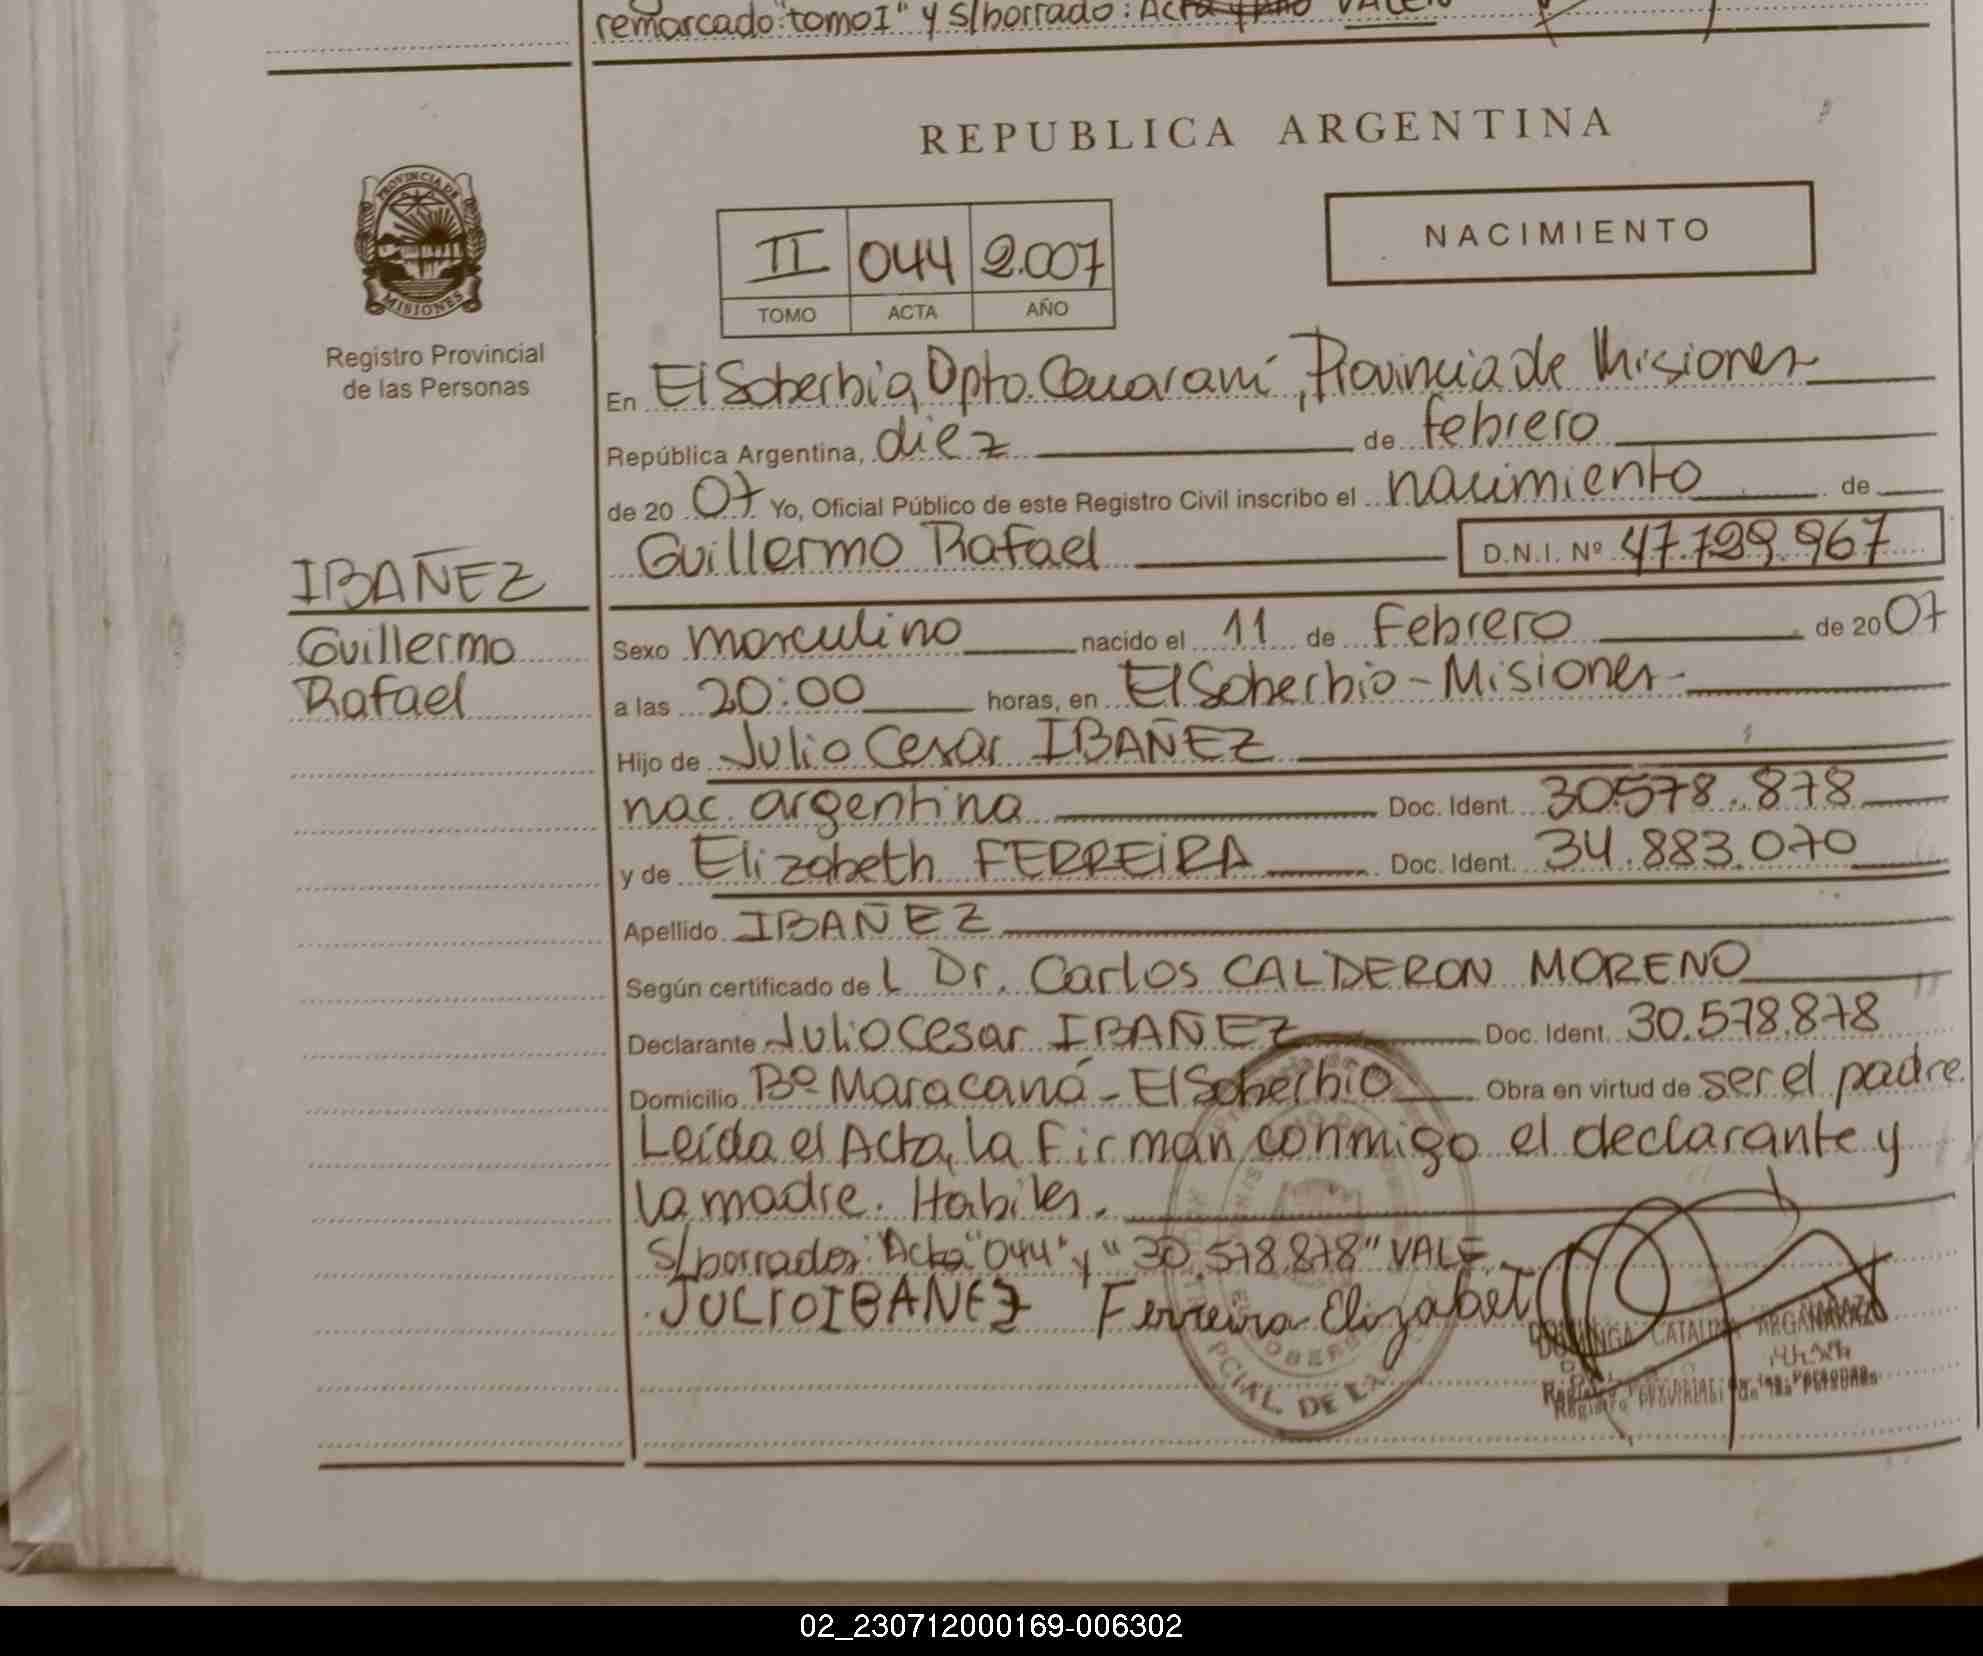 remarcado "tomo I" y s/borrado: Acta y Año VALEN
REPUBLICA ARGENTINA
PROVINCIA DE
MISIONES
Registro Provincial
de las Personas
II 044 2.007
TOMO ACTA AÑO
NACIMIENTO
En El Soberbio, Dpto. Guaraní, Provincia de Misiones
República Argentina, diez de febrero
de 20 07 Yo, Oficial Público de este Registro Civil inscribo el nacimiento de
Guillermo Rafael D.N.I. Nº 47.729.967
IBAÑEZ
Guillermo
Rafael
Sexo masculino nacido el 11 de Febrero de 20 07
a las 20:00 horas, en El Soberbio - Misiones
Hijo de Julio Cesar IBAÑEZ
nac. argentina Doc. Ident. 30.578.878
y de Elizabeth FERREIRA Doc. Ident. 34.883.070
Apellido IBAÑEZ
Según certificado de l Dr. Carlos CALDERON MORENO
Declarante Julio Cesar IBAÑEZ Doc. Ident. 30.578.878
Domicilio Bº Maracaná - El Soberbio Obra en virtud de ser el padre
Leída el Acta, la Firman conmigo el declarante y
la madre. Hábiles.
s/borrados: Acta "044" y "30.578.878" VALE
JULIO IBANEZ Ferreira Elizabet
DOMINGA CATALINA ARGAÑARAZ
Registro Provincial de las Personas
PCIAL. DE LA
02_230712000169-006302